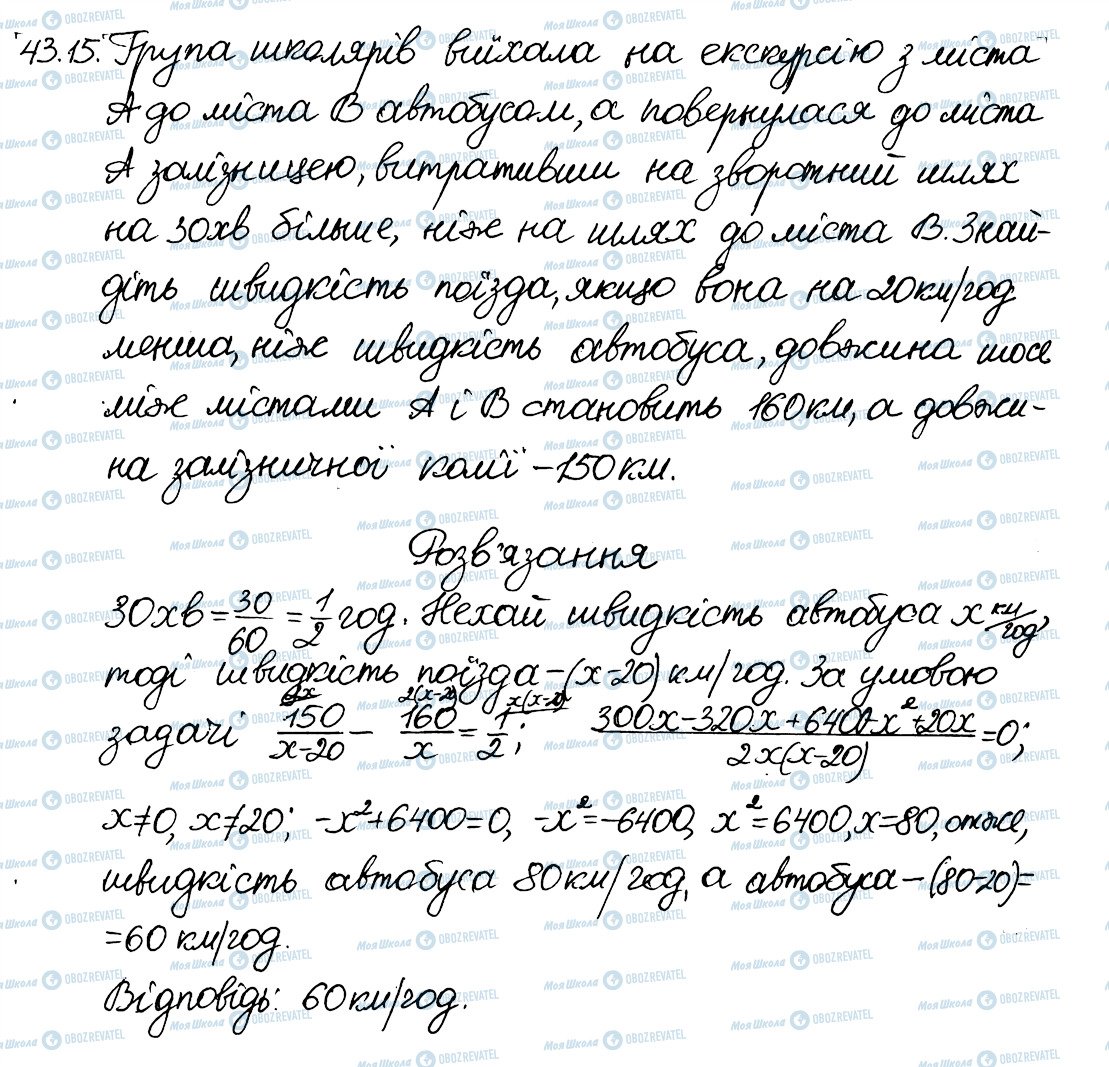 43.15. Група школярів виїхала на екскурсію з міста
А до міста В автобусом, а повернулася до міста
А залізницею, витративши на зворотний шлях
на 30хв більше, ніж на шлях до міста В. Знай-
діть швидкість поїзда, якщо вона на 20км/год
менша, ніж швидкість автобуса, довжина шосе
між містами А і В становить 160км, а довжи-
на залізничної колії – 150км.
Розв'язання
30хв = 30/60 = 1/2 год. Нехай швидкість автобуса х км/год,
тоді швидкість поїзда – (х-20) км/год. За умовою
задачі 2х 150/(х-20) – 2(х-20) 160/х = х(х-20) 1/2; (300х-320х+6400-х²+20х)/(2х(х-20)) = 0;
х≠0, х≠20; -х²+6400=0, -х²=-6400, х²=6400, х=80, отже,
швидкість автобуса 80км/год, а автобуса – (80-20)=
=60 км/год.
Відповідь: 60км/год.